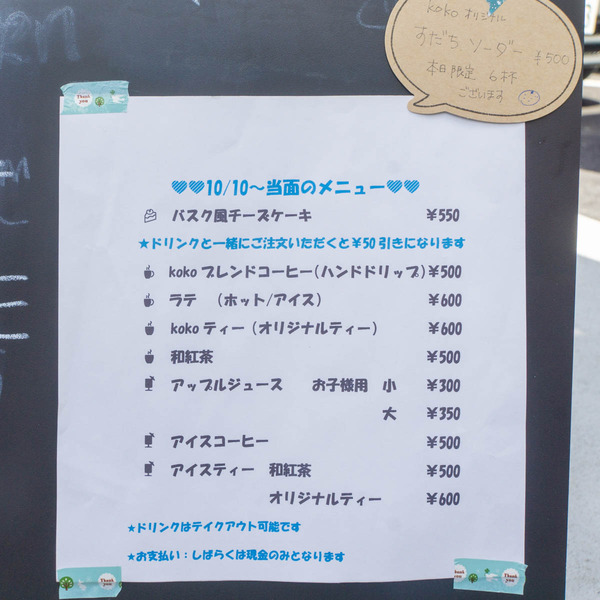 koko オリジナル
すだち ソーダー ¥500
本日限定 6杯
ございます
Thank you
10/10～当面のメニュー
バスク風チーズケーキ ¥550
★ドリンクと一緒にご注文いただくと¥50引きになります
kokoブレンドコーヒー(ハンドドリップ) ¥500
ラテ (ホット/アイス) ¥600
kokoティー(オリジナルティー) ¥600
和紅茶 ¥500
アップルジュース お子様用 小 ¥300
大 ¥350
アイスコーヒー ¥500
アイスティー 和紅茶 ¥500
オリジナルティー ¥600
★ドリンクはテイクアウト可能です
★お支払い：しばらくは現金のみとなります
Thank you
Thank you